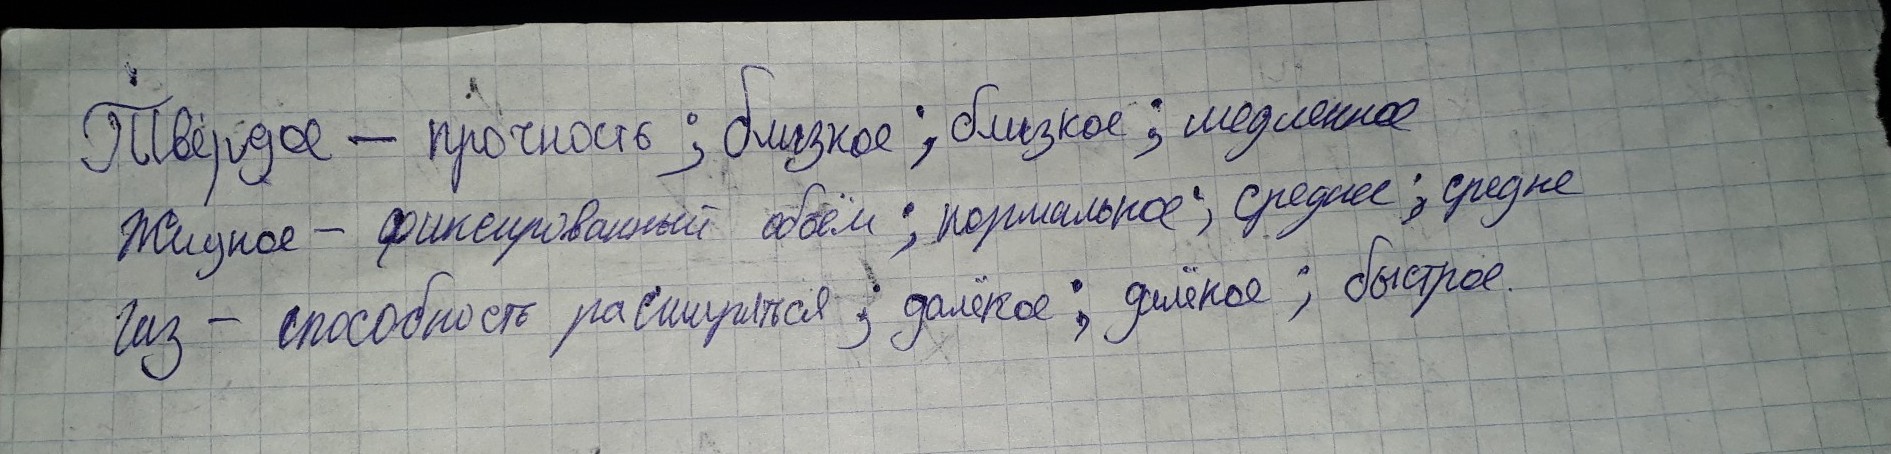 Твёрдое — прочность; близкое; близкое; медленное
Жидкое — фиксированный объём; нормальное; среднее; средне
газ — способность расширяться; далёкое; далёкое; быстрое.